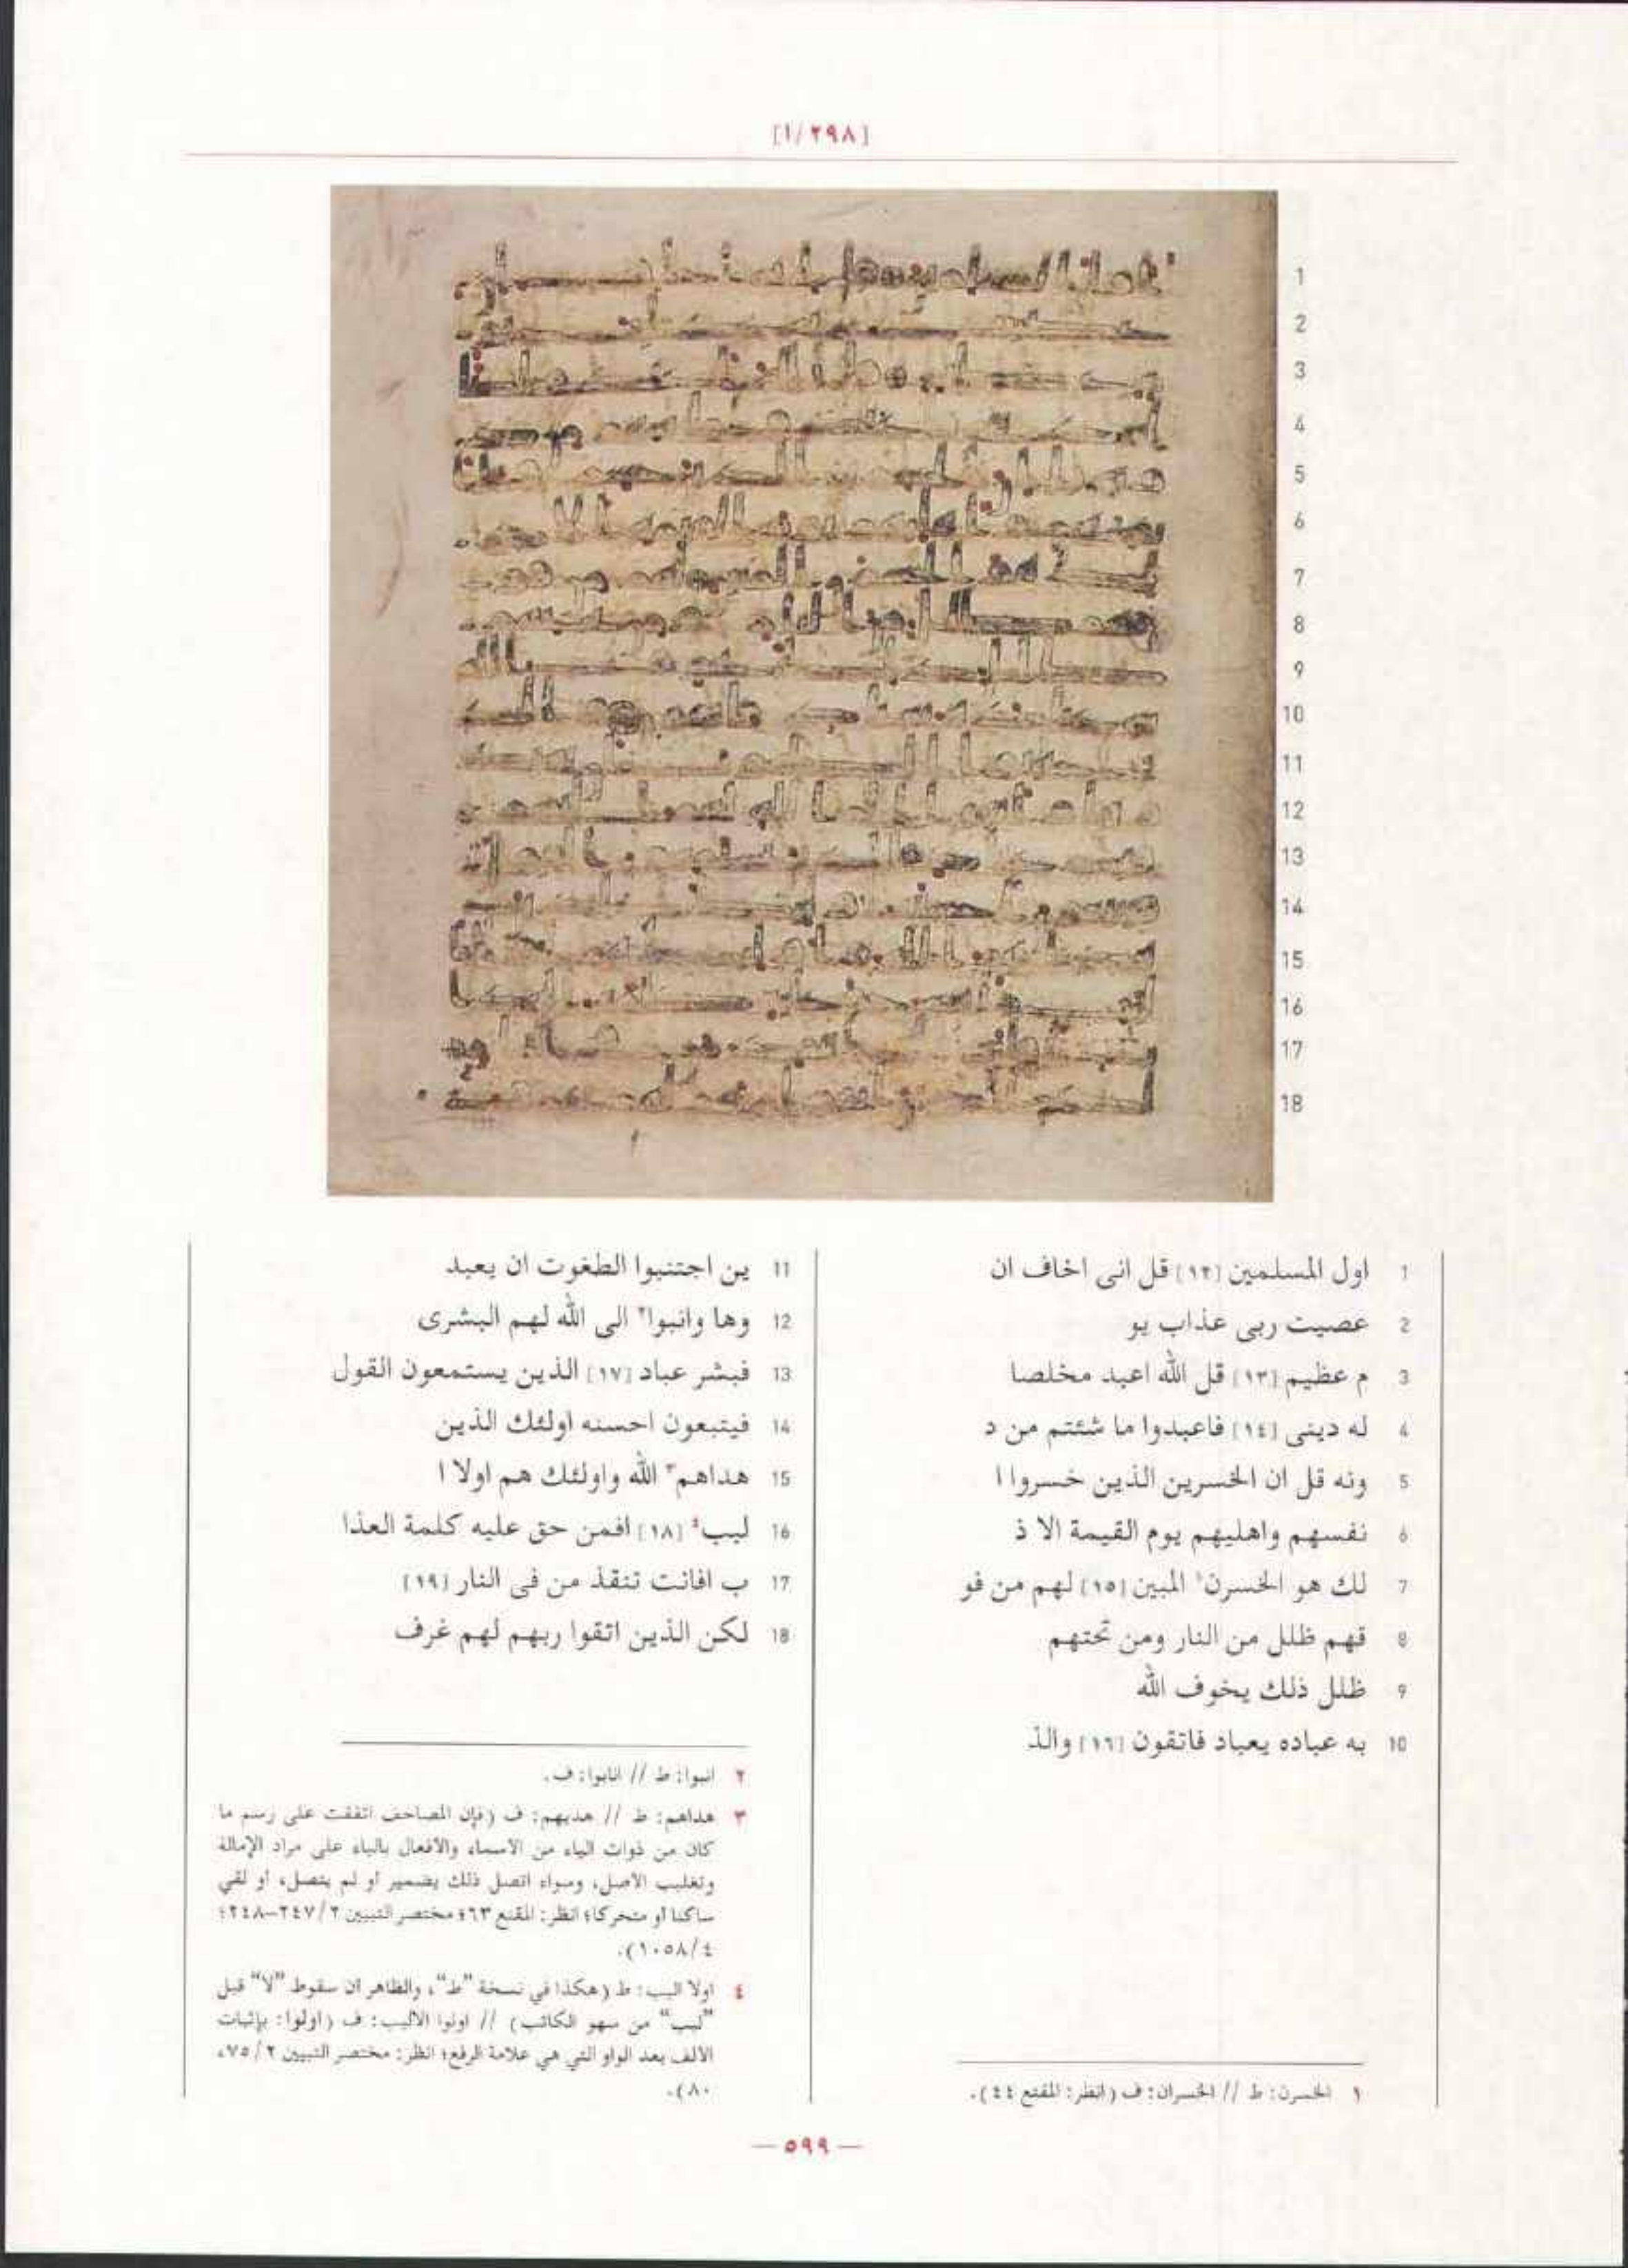 [١/٢٩٨]
1 اول المسلمين [١٢] قل انى اخاف ان
2 عصيت ربى عذاب يو
3 م عظيم [١٣] قل الله اعبد مخلصا
4 له دينى [١٤] فاعبدوا ما شئتم من د
5 ونه قل ان الخسرين الذين خسروا ا
6 نفسهم واهليهم يوم القيمة الا ذ
7 لك هو الخسرن١ المبين [١٥] لهم من فو
8 قهم ظلل من النار ومن تحتهم
9 ظلل ذلك يخوف الله
10 به عباده يعباد فاتقون [١٦] والذ
١ الخسرن: ط // الخسران: ف (انظر: المقنع ٤٤).
11 ين اجتنبوا الطغوت ان يعبد
12 وها وانبوا٢ الى الله لهم البشرى
13 فبشر عباد [١٧] الذين يستمعون القول
14 فيتبعون احسنه اولئك الذين
15 هداهم٣ الله واولئك هم اولا ا
16 ليب٤ [١٨] افمن حق عليه كلمة العذا
17 ب افانت تنقذ من فى النار [١٩]
18 لكن الذين اتقوا ربهم لهم غرف
٢ انبوا: ط // انابوا: ف.
٣ هداهم: ط // هديهم: ف (فإن المصاحف اتفقت على رسم ما
كان من ذوات الياء من الاسماء والافعال بالياء على مراد الإمالة
وتغليب الأصل، وسواء اتصل ذلك بضمير أو لم يتصل، أو لقي
ساكنا أو متحركا؛ انظر: المقنع ٦٣؛ مختصر التبيين ٢/٢٤٧-٢٤٨؛
٤/١٠٥٨).
٤ اولا اليب: ط (هكذا في نسخة "ط"، والظاهر ان سقوط "لا" قبل
"ليب" من سهو الكاتب) // اولوا الاليب: ف (اولوا: بإثبات
الألف بعد الواو التي هي علامة الرفع؛ انظر: مختصر التبيين ٢/٧٥،
٨٠).
— ٥٩٩ —